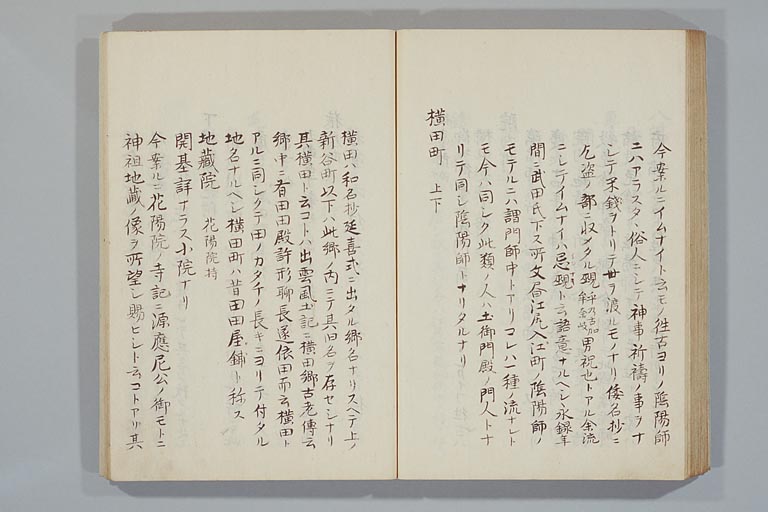 今案ルニイムナイト云モノ徃古ヨリノ陰陽師
ニハアラスタヽ俗人ニシテ神事祈禱ノ事ヲナ
シテ米錢ヲトリテ世ヲ渡ルモノナリ倭名抄ニ
乞盗ノ部ニ収メタル覡男祝也トアル余流
ニシテイムナイハ忌覡ト云語意ナルヘシ永録年
間ニ武田氏下ス所文書江尻入江町ノ陰陽師ノ
モテルニハ謂門師中トアリコレハ一種ノ流ナレト
モ今ハ同シク此類ノ人ハ土御門殿ノ門人トナ
リテ同シ陰陽師トナリタルナリ
横田町 上下
横田ハ和名抄延喜式ニ出タル郷名ナリスヘテ上ノ
新谷町以下ハ此郷ノ内ニテ其旧名ヲ存セシナリ
其横田ト云コトハ出雲風土記ニ横田郷古老傳云
郷中ニ有田田殿許形聊長遂依田而云横田ト
アルニ同シクテ田ノカタチノ長キニヨリテ付タル
地名ナルヘシ横田町ハ昔田田屋鋪ト称ス
地藏院 花陽院持
開基詳ナラス小院ナリ
今案ルニ花陽院ノ寺記ニ源應尼公ノ御モトニ
神祖地藏ノ像ヲ所望シ賜ヒシト云コトアリ其